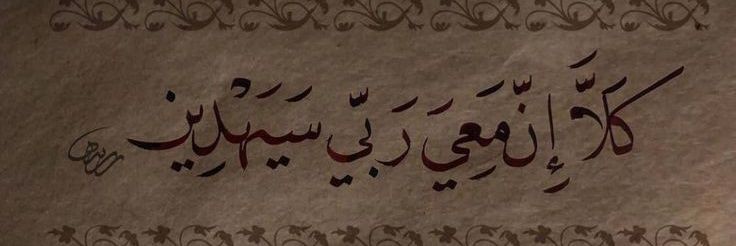 كَلاَّ إِنَّ مَعِيَ رَبِّي سَيَهْدِينِ